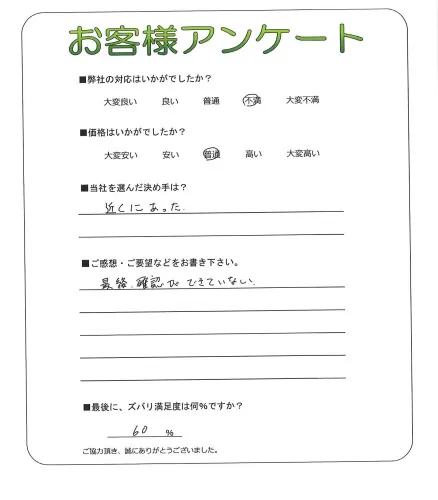 お客様アンケート
■弊社の対応はいかがでしたか？
大変良い 良い 普通 不満 大変不満
■価格はいかがでしたか？
大変安い 安い 普通 高い 大変高い
■当社を選んだ決め手は？
近くにあった.
■ご感想・ご要望などをお書き下さい。
最後.確認ができていない.
■最後に、ズバリ満足度は何%ですか？
60 %
ご協力頂き、誠にありがとうございました。